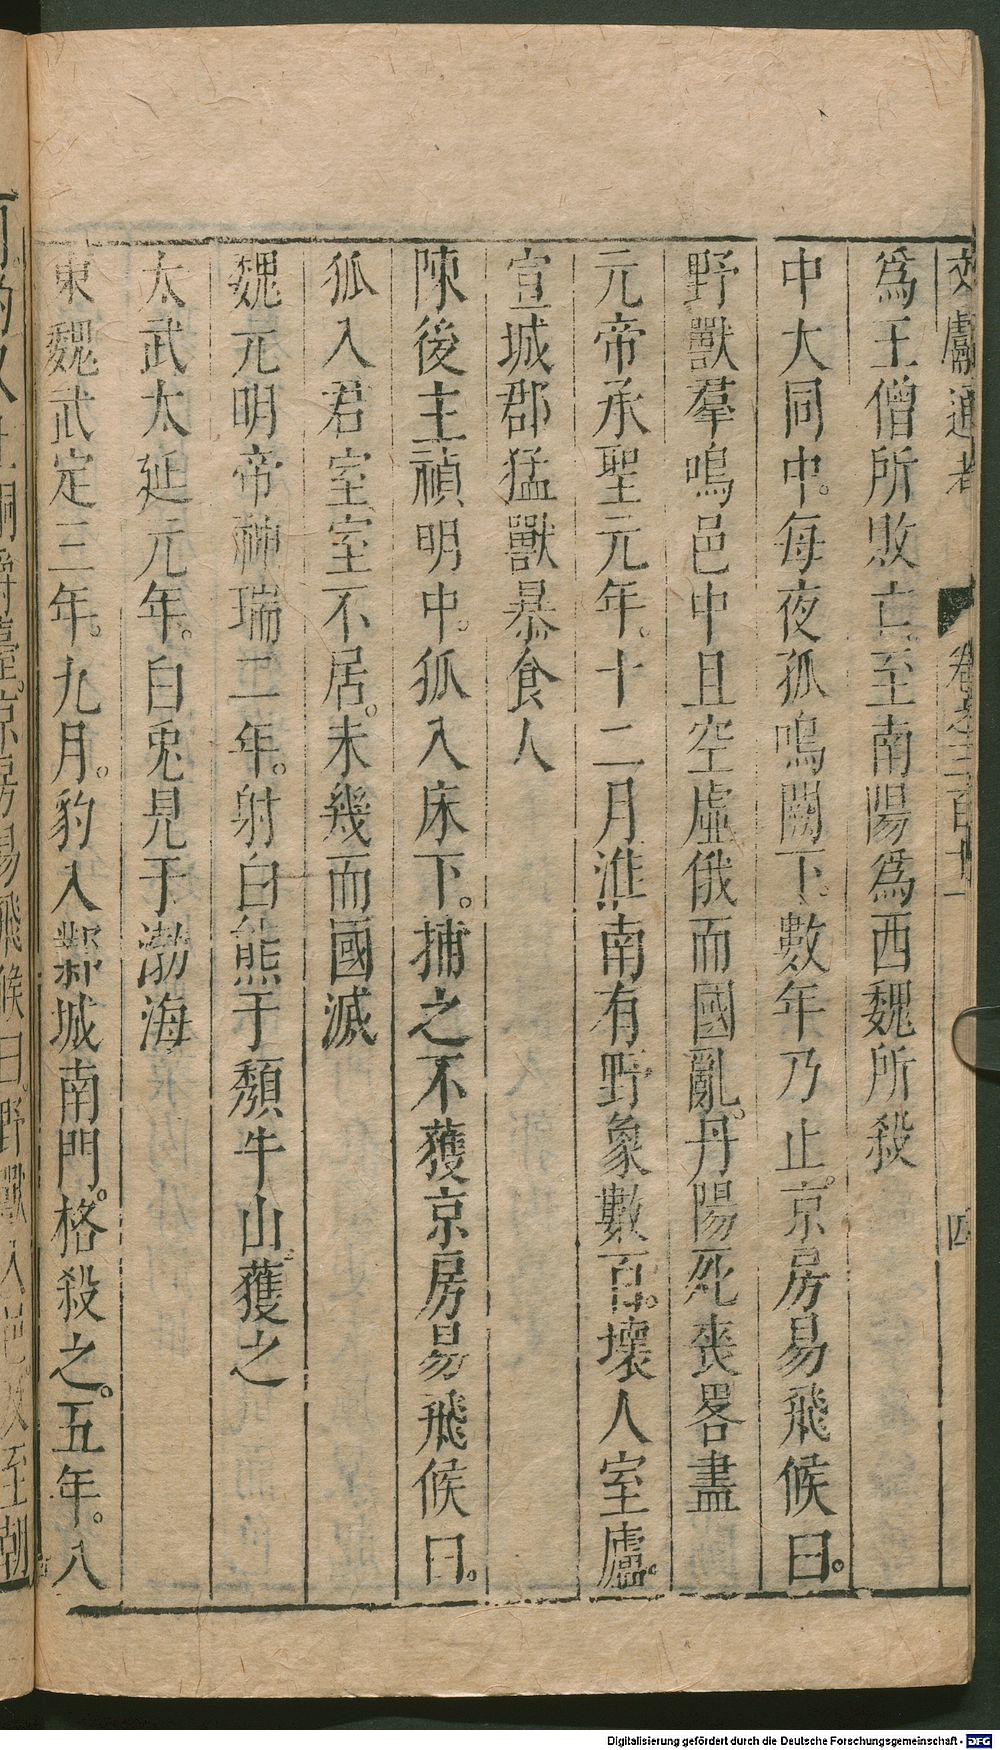 文獻通考 卷之三百十一 四
爲王僧所敗亡。至南陽爲西魏所殺
中大同中。每夜狐鳴闕下。數年乃止。京房易飛候曰。
野獸羣鳴邑中且空虛俄而國亂。丹陽死喪畧盡
元帝承聖元年。十二月淮南有野象數百。壞人室廬。
宣城郡猛獸暴食人
陳後主禎明中。狐入床下。捕之不獲京房易飛候曰。
狐入君室室不居。未幾而國滅
魏元明帝神瑞二年。射白熊于頹牛山。獲之
太武太延元年。白兎見于渤海
東魏武定三年。九月。豹入鄴城南門。格殺之。五年。八
臺。京房易飛候曰。野獸入邑及至朝
Digitalisierung gefördert durch die Deutsche Forschungsgemeinschaft - DFG